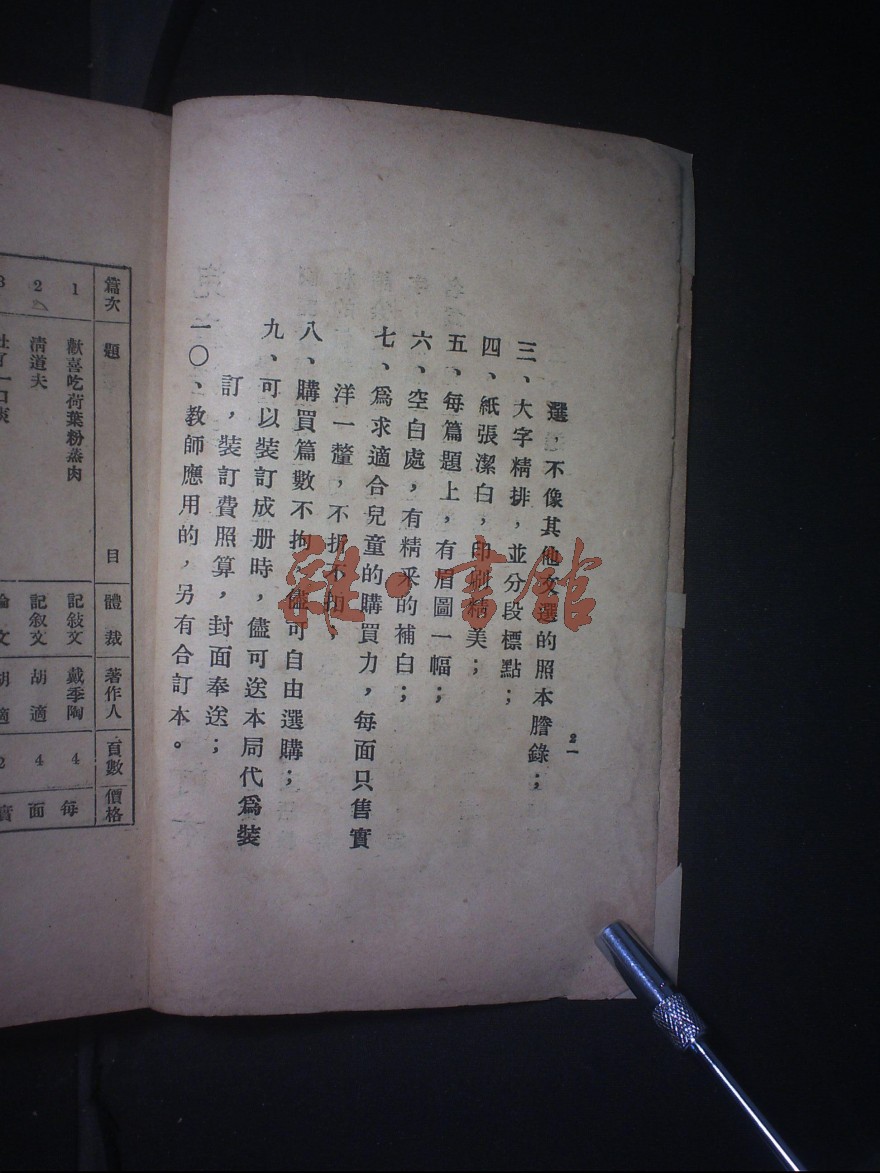 選，不像其他文選的照本謄錄；
三、大字精排，並分段標點；
四、紙張潔白，印刷精美；
五、每篇題上，有眉圖一幅；
六、空白處，有精釆的補白；
七、爲求適合兒童的購買力，每面只售實
洋一釐，不折不扣；
八、購買篇數不拘，儘可自由選購；
九、可以裝訂成册時，儘可送本局代爲裝
訂，裝訂費照算，封面奉送；
一〇、教師應用的，另有合訂本。
2
雜·書館
篇次 題 目 體裁 著作人 頁數 價格
1 歡喜吃荷葉粉蒸肉 記敍文 戴季陶 4 每
2 清道夫 記叙文 胡適 4 面
3 文 胡適 2 實